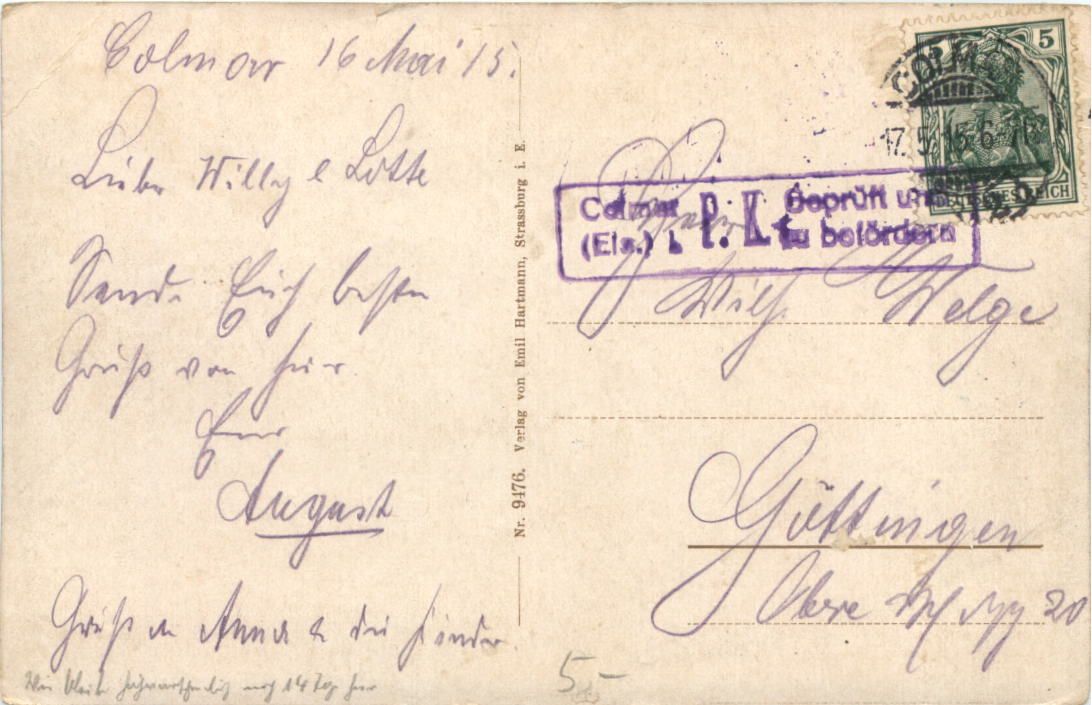 Colmar 16 Mai 15.
Liebe Willy & Lotte
Sende Euch besten
Gruß von hier
Euer
August
Gruß an Anna & die Kinder.
noch 14 Tage hier
Nr. 9476. Verlag von Emil Hartmann, Strassburg i. E.
5
DEUTSCHES REICH
COLMAR
17.5.15.6-7
Colmar P. K. Geprüft und
(Els.) zu befördern
Wilh. Welge
Göttingen
Obere 20
5-